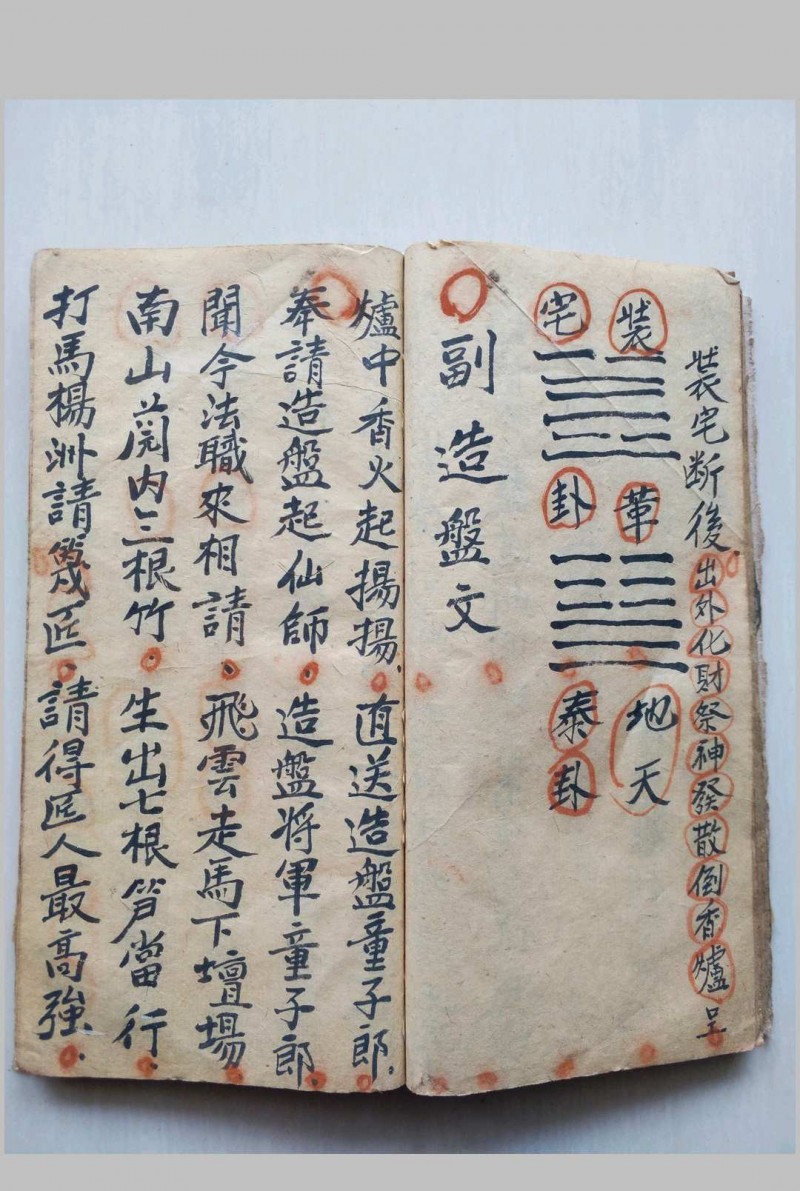 裝宅斷後出外化財祭神發散倒香爐呈
裝革地天
宅卦泰卦
副造盤文
爐中香火起揚揚直送造盤童子郎
奉請造盤起仙師造盤將軍童子郎
聞今法職來相請飛雲走馬下壇場
南山園內三根竹生出七根笋當行
打馬楊洲請篾匠請得匠人最高強